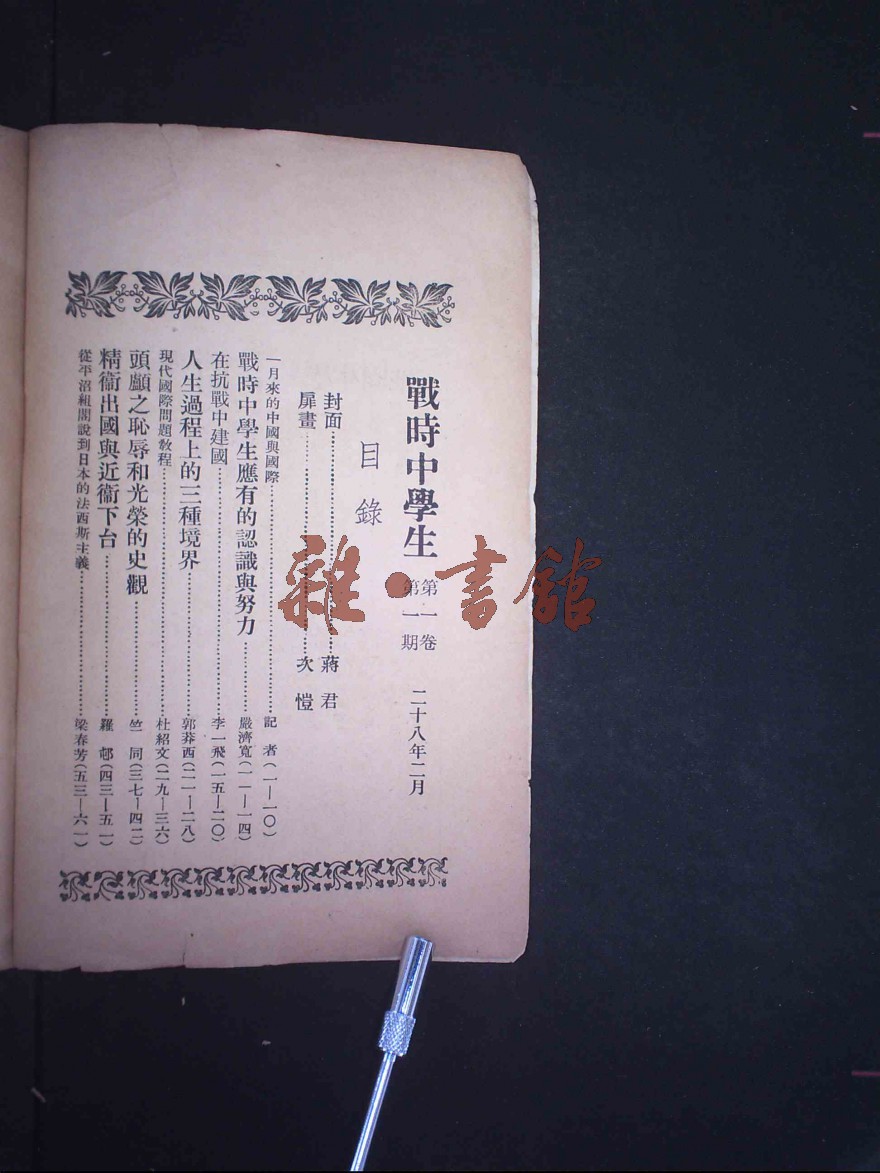 戰時中學生 第一卷 第一期 二十八年二月
目錄
封面……蔣君
扉畫……次愷
一月來的中國與國際……記者(一—一〇)
戰時中學生應有的認識與努力……嚴濟寬(一一—一四)
在抗戰中建國……李一飛(一五—二〇)
人生過程上的三種境界……郭莽西(二一—二八)
現代國際問題教程……杜紹文(二九—三六)
頭顱之恥辱和光榮的史觀……竺同(三七—四二)
精衞出國與近衞下台……羅郁(四三—五一)
從平沼組閣說到日本的法西斯主義……梁春芳(五三—六一)
雜·書館